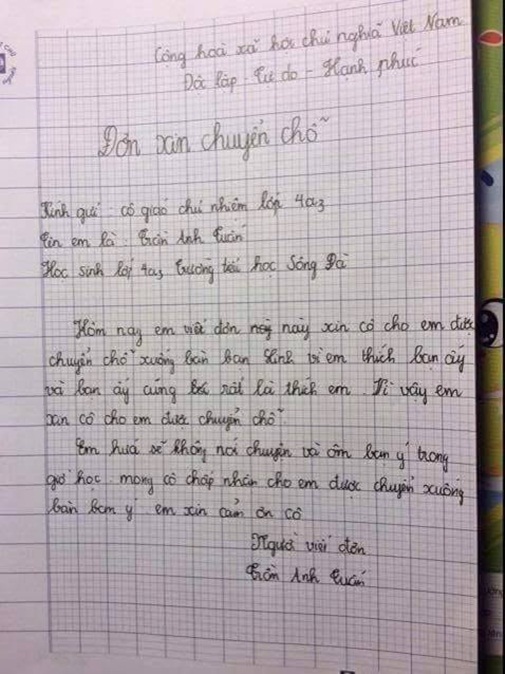 Cộng hoà xã hội chủ nghĩa Việt Nam
Độc lập - Tự do - Hạnh phúc
Đơn xin chuyển chỗ
Kính gửi: cô giáo chủ nhiệm lớp 4a3
Tên em là: Trần Anh Tuấn
Học sinh lớp 4a3 trường tiểu học Sông Đà
Hôm nay em viết đơn này xin cô cho em được
chuyển chỗ xuống bàn bạn Linh vì em thích bạn ấy
và bạn ấy cũng rất là thích em. Vì vậy em
xin cô cho em được chuyển chỗ.
Em hứa sẽ không nói chuyện và ôm bạn ý trong
giờ học. mong cô chấp nhận cho em được chuyển xuống
bàn bạn ý. em xin cảm ơn cô
Người viết đơn
Trần Anh Tuấn